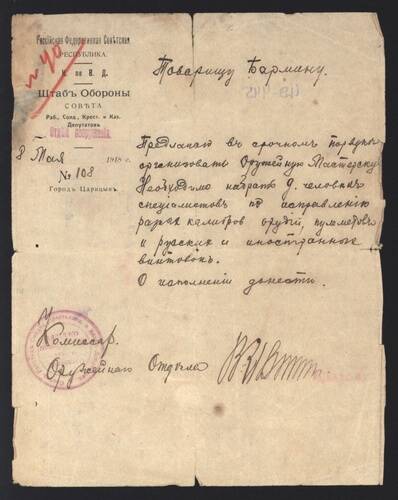 Россійская Федеративная Совѣтская
РЕСПУБЛИКА.
К. по В. Д.
Штабъ Обороны
СОВѢТА
Раб., Солд., Крест. и Каз.
Депутатовъ
Отдѣлъ Вооруженія
8 Мая 1918 г.
№ 108
Городъ Царицынъ
Товарищу Бармину.
Предлагаю въ срочномъ порядкѣ
организовать Оружейную Мастерскую
Необходимо набрать человекъ
спеціалистовъ по исправленію
разных калибров орудій, пулеметовъ
и русских и иностранных
винтовокъ.
О исполненіи донести.
Комиссар
Оружейнаго Отдѣла